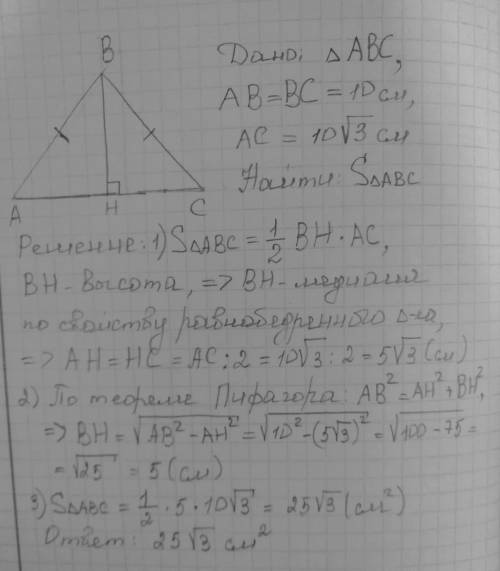 B
Дано: △ ABC,
AB=BC = 10 см,
AC = 10√3 см
Найти: S△ABC
A H C
Решение: 1) S△ABC = 1/2 BH · AC,
BH - высота, => BH - медиана
по свойству равнобедренного △-ка,
=> AH = HC = AC : 2 = 10√3 : 2 = 5√3 (см)
2) По теореме Пифагора: AB² = AH² + BH²,
=> BH = √AB² - AH² = √10² - (5√3)² = √100 - 75 =
= √25 = 5 (см)
3) S△ABC = 1/2 · 5 · 10√3 = 25√3 (см²)
Ответ: 25√3 см²